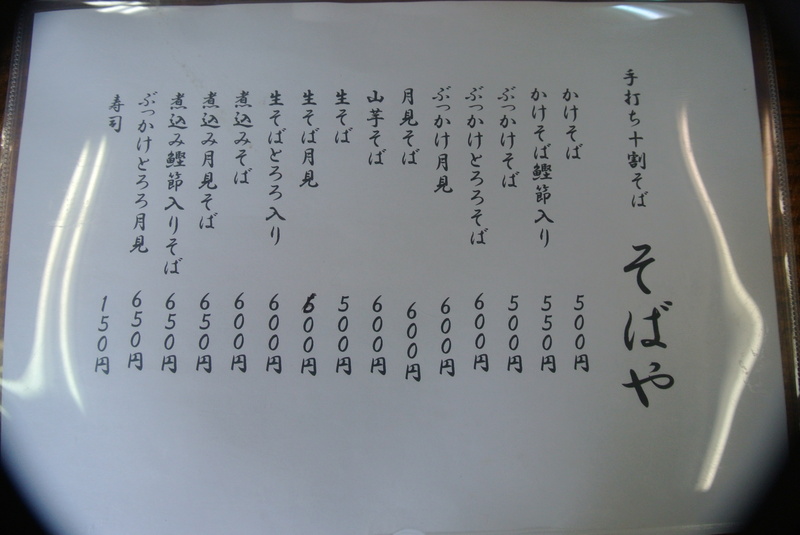 手打ち十割そば そばや
かけそば 500円
かけそば鰹節入り 550円
ぶっかけそば 500円
ぶっかけとろろそば 600円
ぶっかけ月見 600円
月見そば 600円
山芋そば 600円
生そば 500円
生そば月見 600円
生そばとろろ入り 600円
煮込みそば 600円
煮込み月見そば 650円
煮込み鰹節入りそば 650円
ぶっかけとろろ月見 650円
寿司 150円